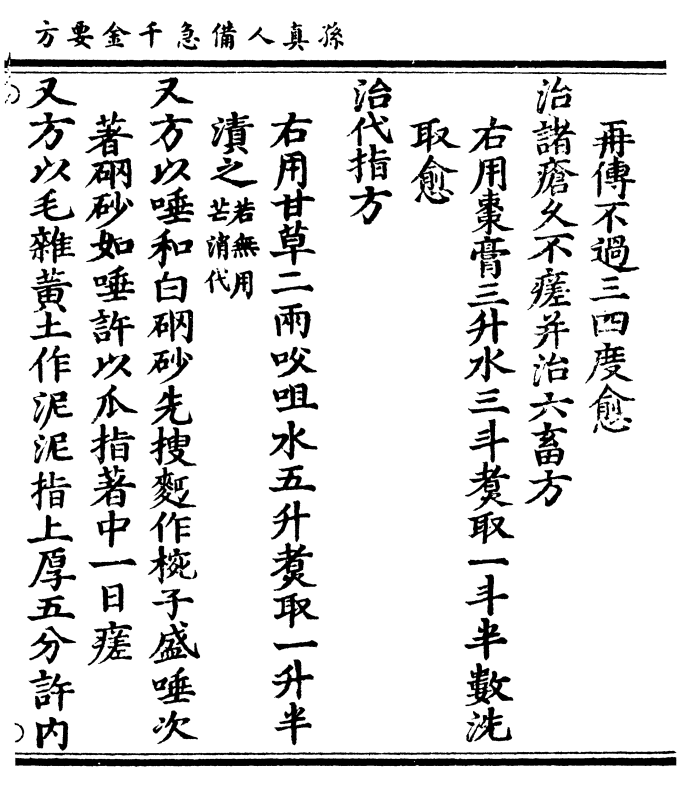 孫真人備急千金要方
再傅不過三四度愈
治諸瘡久不瘥并治六畜方
右用棗膏三升水三斗煑取一斗半數洗
取愈
治代指方
右用甘草二兩㕮咀水五升煑取一升半
漬之若無用芒消代
又方以唾和白硇砂先搜麪作椀子盛唾次
著硇砂如唾許以爪指著中一日瘥
又方以毛雜黃土作泥泥指上厚五分許内